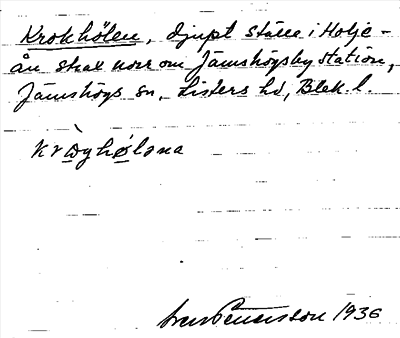 Krokhölen, djupt ställe i Holje-
ån strax norr om Jämshögsby station,
Jämshögs sn, Listers hd, Blek. l.
kròghølana
Sven Petersson 1936